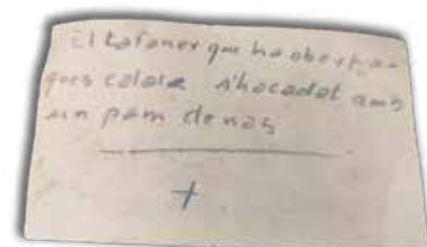 El tafaner que ha obert a-
ques calaix s'ha cadat amb
un pam de nas
+